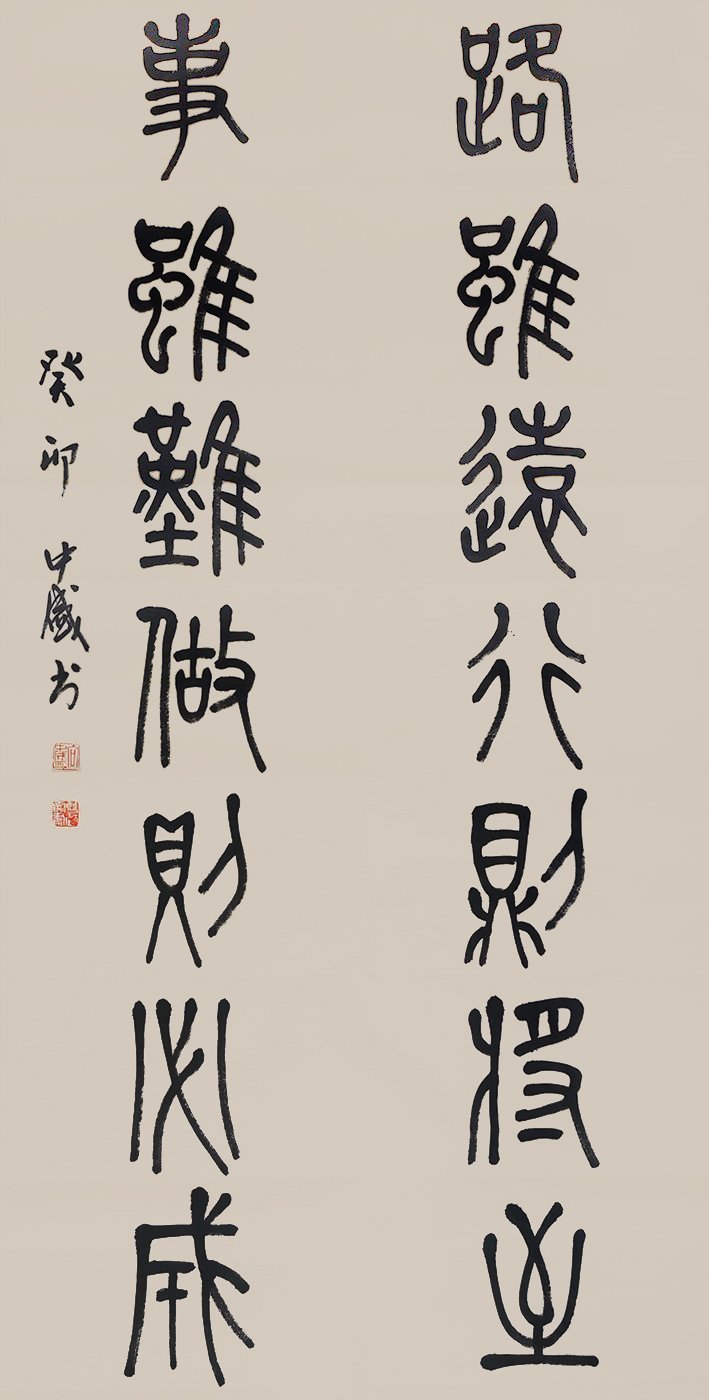 路雖遠行則將至
事雖難做則必成
癸卯 中盛书